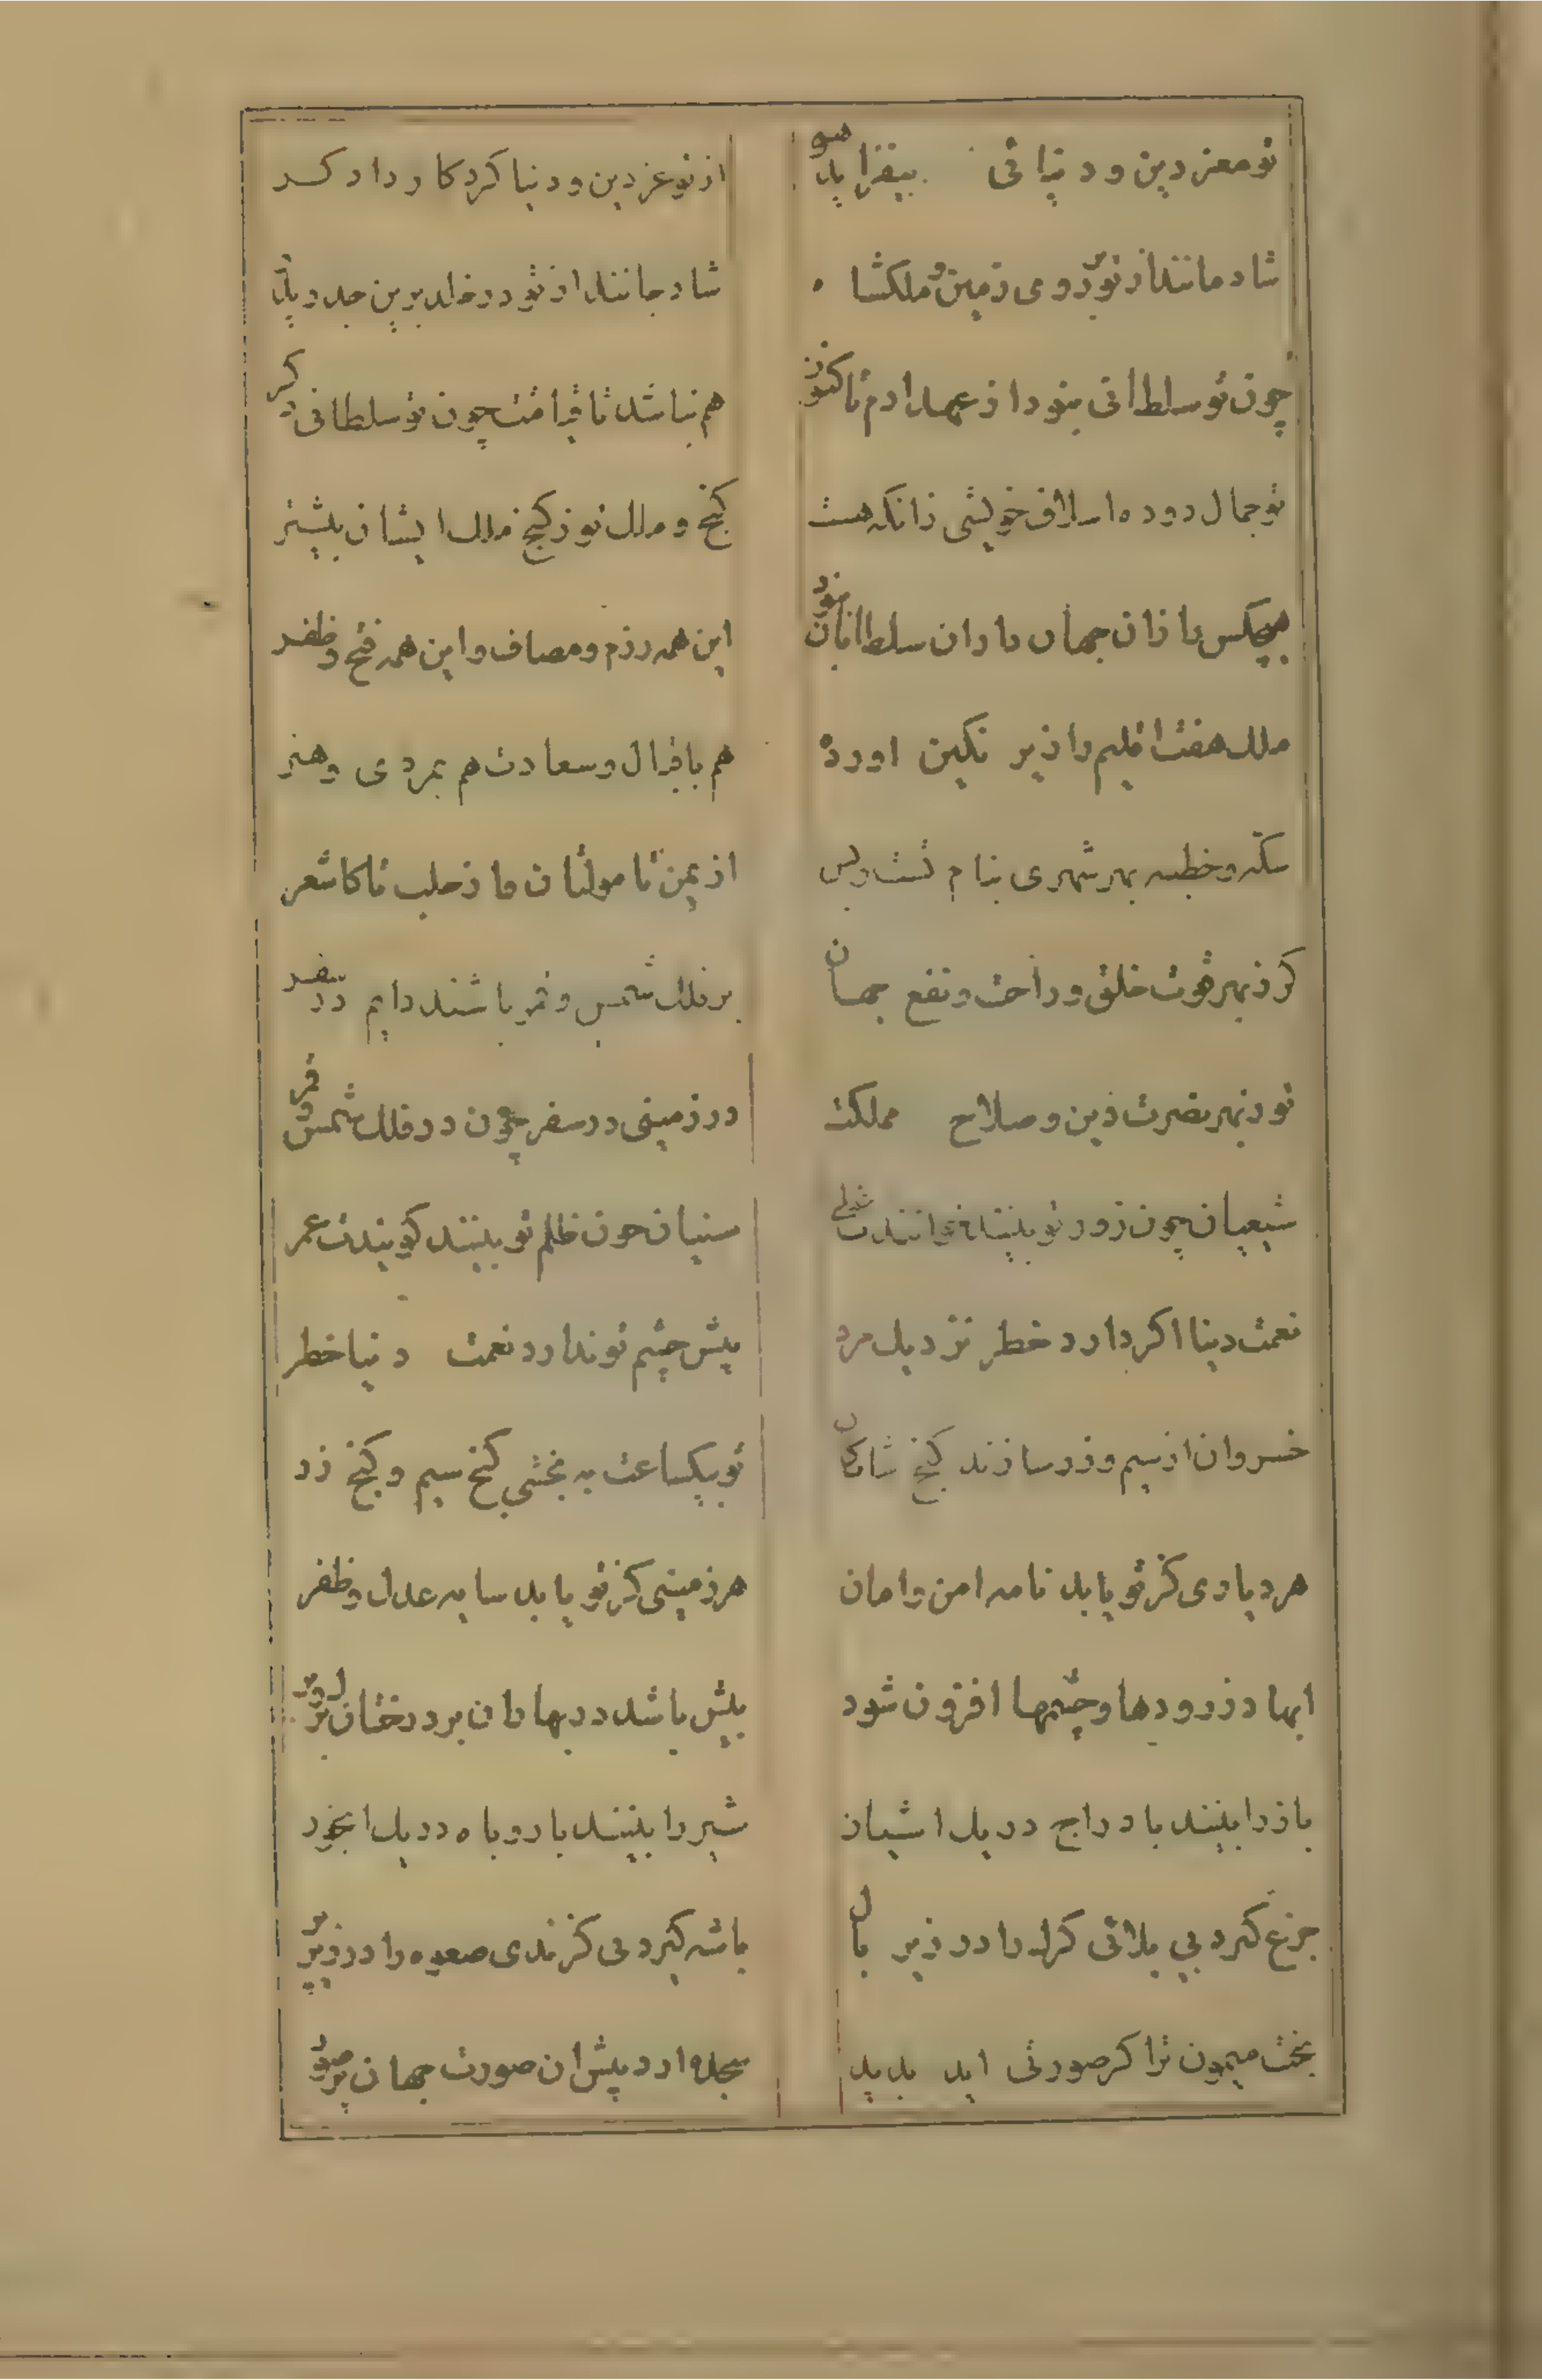 تو معز دین و دنیائی بیفزاید همی
از تو عز دین و دنیا کردکار دادکر
شادمانند از تو بر روی زمین و ملکشاه
شادمانند از تو در خلد برین جد و پدر
چون تو سلطانی نبود از عهد ادم تا کنون
هم نباشد تا قیامت چون تو سلطانی دکر
تو جمال دوده اسلاف خویشی زانکه هست
کنج و ملک تو ز کنج ملک ایشان بیشتر
هیچکس را زان جهان داران سلطانان نبود
این همه رزم و مصاف و این همه فتح و ظفر
ملک هفت اقلیم را زیر نکین اورده
هم باقبال و سعادت هم بمردی و هنر
سکه و خطبه بهر شهری بنام تست و بس
از یمن تا مولتان و از حلب تا کاشغر
کر ز بهر قوت خلق و راحت و نفع جهان
بر فلک شمس و قمر باشند دایم در سفر
تو ز بهر نصرت دین و صلاح مملکت
در زمینی در سفر چون در فلک شمس و قمر
شیعیان چون زور تو بینند خوانندت علی
سنیان چون ظلم تو بینند کویندت عمر
نعمت دینا اکر دارد خطر نزدیک مرد
پیش چشم تو ندارد نعمت دنیا خطر
خسروان از سیم و زر سازند کنج شایکان
تو بیکساعت به بخشی کنج سیم و کنج زر
هر دیاری کز تو یابد نامه امن و امان
هر زمینی کز تو یابد سایه عدل و ظفر
ابها در رودها و چشمها افزون شود
بیش باشد در بهاران بر درختان برک و بر
باز را بینند با دراج در یک اشیان
شیر را بینند با روباه در یک ابخور
چرغ کیرد بی بلائی کبک را در زیر بال
باشه کیرد بی کزندی صعوه را در زیر پر
بخت میمون ترا کر صورتی اید پدید
سجده ارد پیش ان صورت جهان پر صور